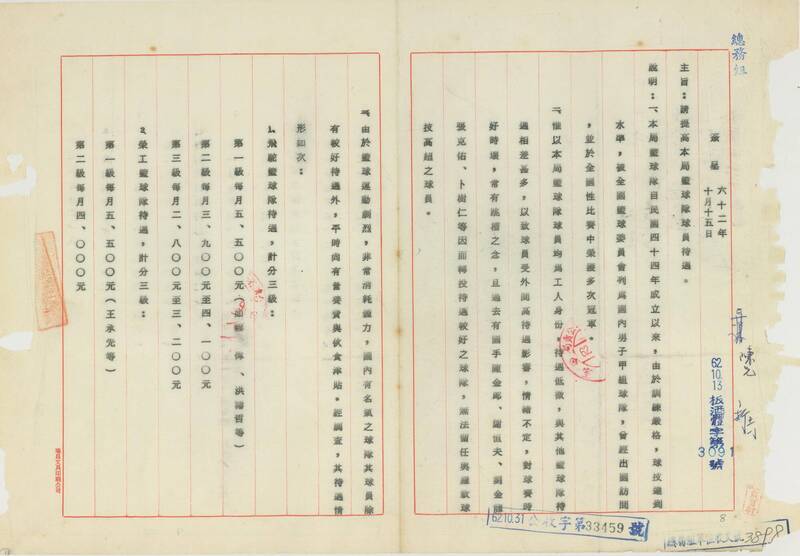 總務組
簽呈
六十二年
十月十五日
主旨:請提高本局籃球隊球員待遇。
說明:一、本局籃球隊自民國四十四年成立以來,由於訓練嚴格,球技達到
水準,被全國籃球委員會列為國內男子甲組球隊,曾經出國訪問
,並於全國性比賽中榮獲多次冠軍。
二、惟以本局籃球隊球員均為工人身份,待遇低微,與其他籃球隊待
遇相差甚多,以致球員受外間高待遇影響,情緒不定,對球賽時
好時壞,常有跳槽之念,且過去有國手陳金郎、
張克佑、卜樹仁等因而轉投待遇較好之球隊,無法留任與羅致球
技高超之球員。
62.10.13
板酒體字第
3091
號
62.10.31 公收字第33459號
3898
8
由於籃球運動劇烈,非常消耗體力,國內有名氣之球隊其球員除
有較好待遇外,平時尚有營養費與伙食津貼。經調查,其待遇情
形如次:
1.飛駝籃球隊待遇,計分三級:
第一級每月五、五〇〇元(、洪濬哲等)
第二級每月三、九〇〇元至四、一〇〇元
第三級每月二、八〇〇元至三、二〇〇元
2.榮工籃球隊待遇,計分三級:
第一級每月五、五〇〇元(王承先等)
第二級每月四、〇〇〇元